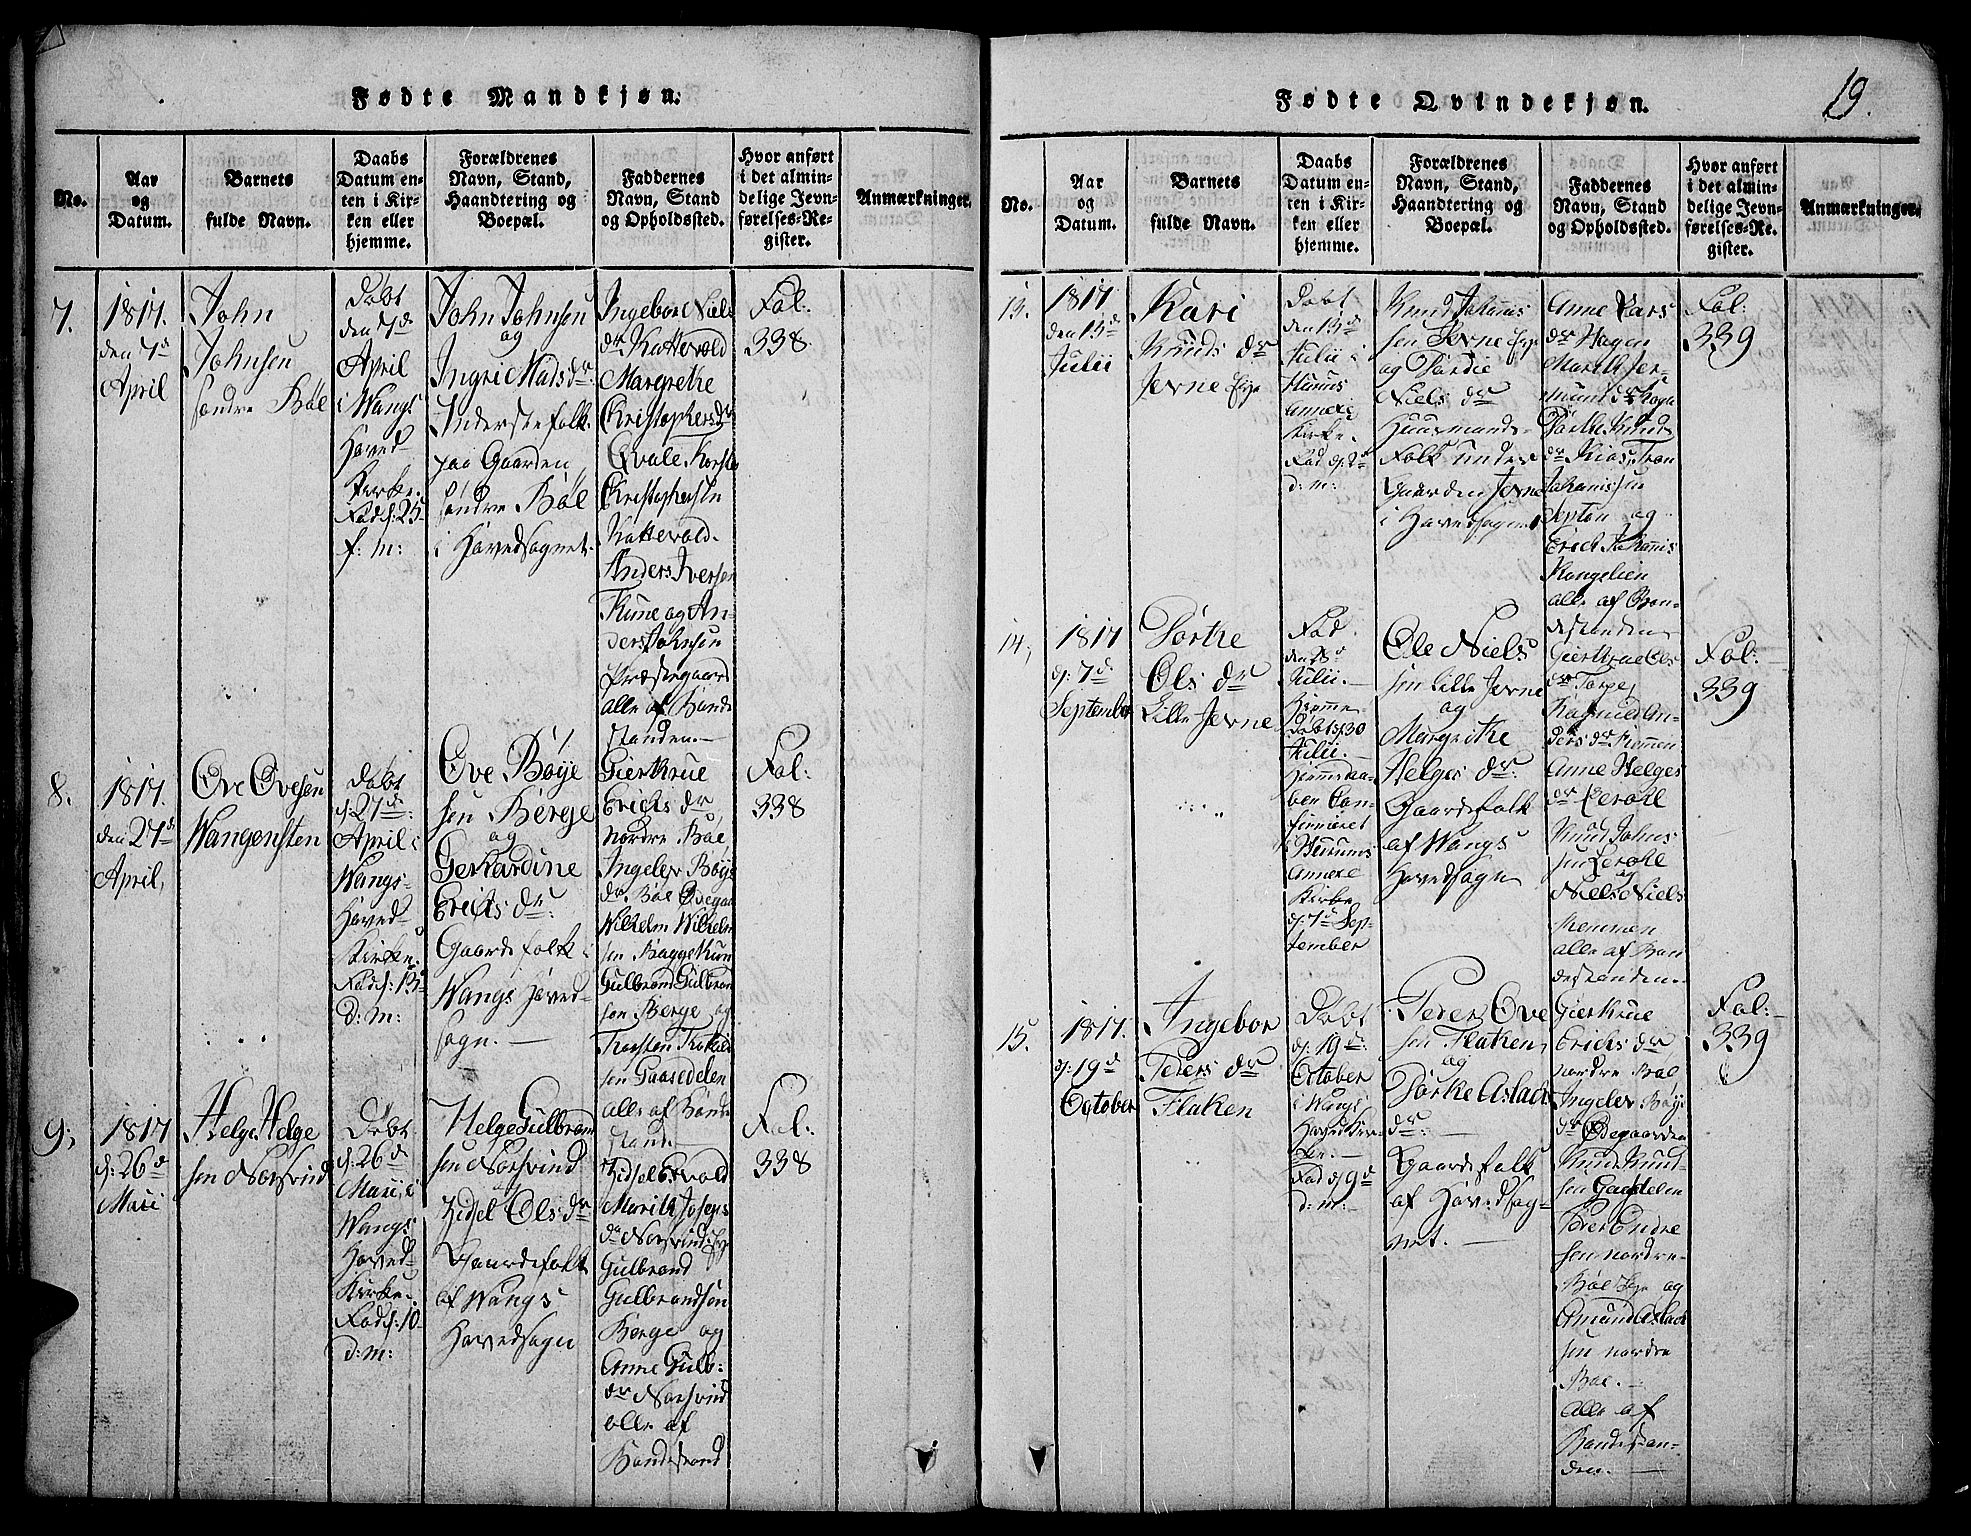 Fødte Mandkjøn.
No.
Aar
og
Datum.
Barnets
fulde Navn.
Daabs
Datum en-
ten i Kir-
ken eller
hjemme.
Forældrenes
Navn, Stand,
Haandtering og
Boepæl.
Faddernes
Navn, Stand
og Opholdssted.
Hvor anført
i det almin-
delige Jevn-
førelses-Re-
gister.
Anmærkninger.
7.
1817.
den 7d
April
John
Johnsen
søndre Böe
Döbt
den 7d
April
i Wangs
Hoved-
Kirke.
Föd d: 25
f: m:
John Johnsen
og
Ingri Madsdr:
Inderstefolk
paa Gaarden
søndre Böe
i Hovedsognet.
Ingebor Niels
dr Kattevold
Margrethe
Christophersdr
Qvale, Torsten
Christophersen
Kattevold.
Anders Iversen
Kune og An-
ders Johnsen
Præstegaard
alle af Bonde
standen.
Fol:
338.
8.
1817.
den 27d
April,
Ove Ovesen
Wangensten
Döbt
d: 27d
April i
Wangs
Hoved-
Kirke.
Föd d: 13
d: m:
Ove Böye
sen Berge
og
Gerhardine
Erichs dr:
Gaardefolk i
Wangs Hoved-
sogn.
Gierthrue
Erichs dr
nordre Böe,
Ingeler Böys
dr Böe
Wilhelm Wilhelm
sen
Gulbrand Gulbran
sen Berge og
Thorsten
sen Gaasedelen
alle af Bonde
stand.
Fol:
338
9.
1817
d: 26d
Maii
Helge Helge
sen Norsvind
Döbt
d: 26d
Maii, i
Wangs
Hoved-
Kirke.
Föd d: 10
d: m:
Helge Gulbrand
sen Norsvind
og
Zidsel Ols dr
Gaardefolk
af Wangs
Hovedsogn
Marith Joseps
dr Norsvind
Gulbrand
Gulbrandsen
Berge og
Anne Gulb:
dr Norsvind
alle af
Bondestand
Fol:
338
Fødte Qvindekjøn.
19.
No.
Aar
og
Datum.
Barnets
fulde Navn.
Daabs
Datum en-
ten i Kir-
ken eller
hjemme.
Forældrenes
Navn, Stand,
Haandtering og
Boepæl.
Faddernes
Navn, Stand
og Opholdssted.
Hvor anført
i det almin-
delige Jevn-
førelses-Re-
gister.
Anmærkninger.
13.
1817.
den 13d
Julii
Kari
Knuds dr
Jerne Eye
Döbt
den 13d
Julii i
Hurums
Annexe
Kirke.
Föd d: 2d
d: m:
Knud Johannis
sen Jerne Eye
og
Niels dr
Huusmands
Folk under
Gaarden Jerne
i Hovedsognet
Anne Lars
dr Hagen
Marith Jer-
mund dr
Knuds
dr
Johannissen
og
Erich Johannis
alle af Bon-
destanden
Fol:
339
14,
1817
d: 7d
September
Pörthe
Ols dr
Lille Jerne
Föd
den 8d
Julii.
Hjemme
döbt d: 30
Julii.
Hjemmedaa-
ben Con-
firmeret
i Hurums
Annexe
Kirke
d: 7d Sep-
tember
Ole Niels
sen Lille Jerne
og
Margrethe
Helges dr:
Gaardefolk
af Wangs
Hovedsogn
Gierthrue Ols
dr
Ragnild An-
ders dr Kemmen
Anne Helges
dr Lerohl
Knud Johns
sen Lerohl
og
Niels Niels
Kemmen
alle af Bon
destanden.
Fol:
339
15.
1817.
d: 19d
October
Ingebor
Peders dr
Flaten
Döbt
d: 19d
October
i Wangs
Hoved Kir-
ke.
Föd d: 9d
d: m:
Peder Ove
sen Flaten
og
Pörthe Aslach
dr:
Gaardefolk
af Hovedsog-
net.
Gierthrue
Erichs dr
nordre Böe,
Ingeler Böye
dr Ödegaarden
Knud Knud-
sen Gaasdelen
Peder Endre
sen nordre
Böe Eye og
Amund Aslach
sen nordre
Böe.
Alle af
Bondestan-
den.
Fol:
339